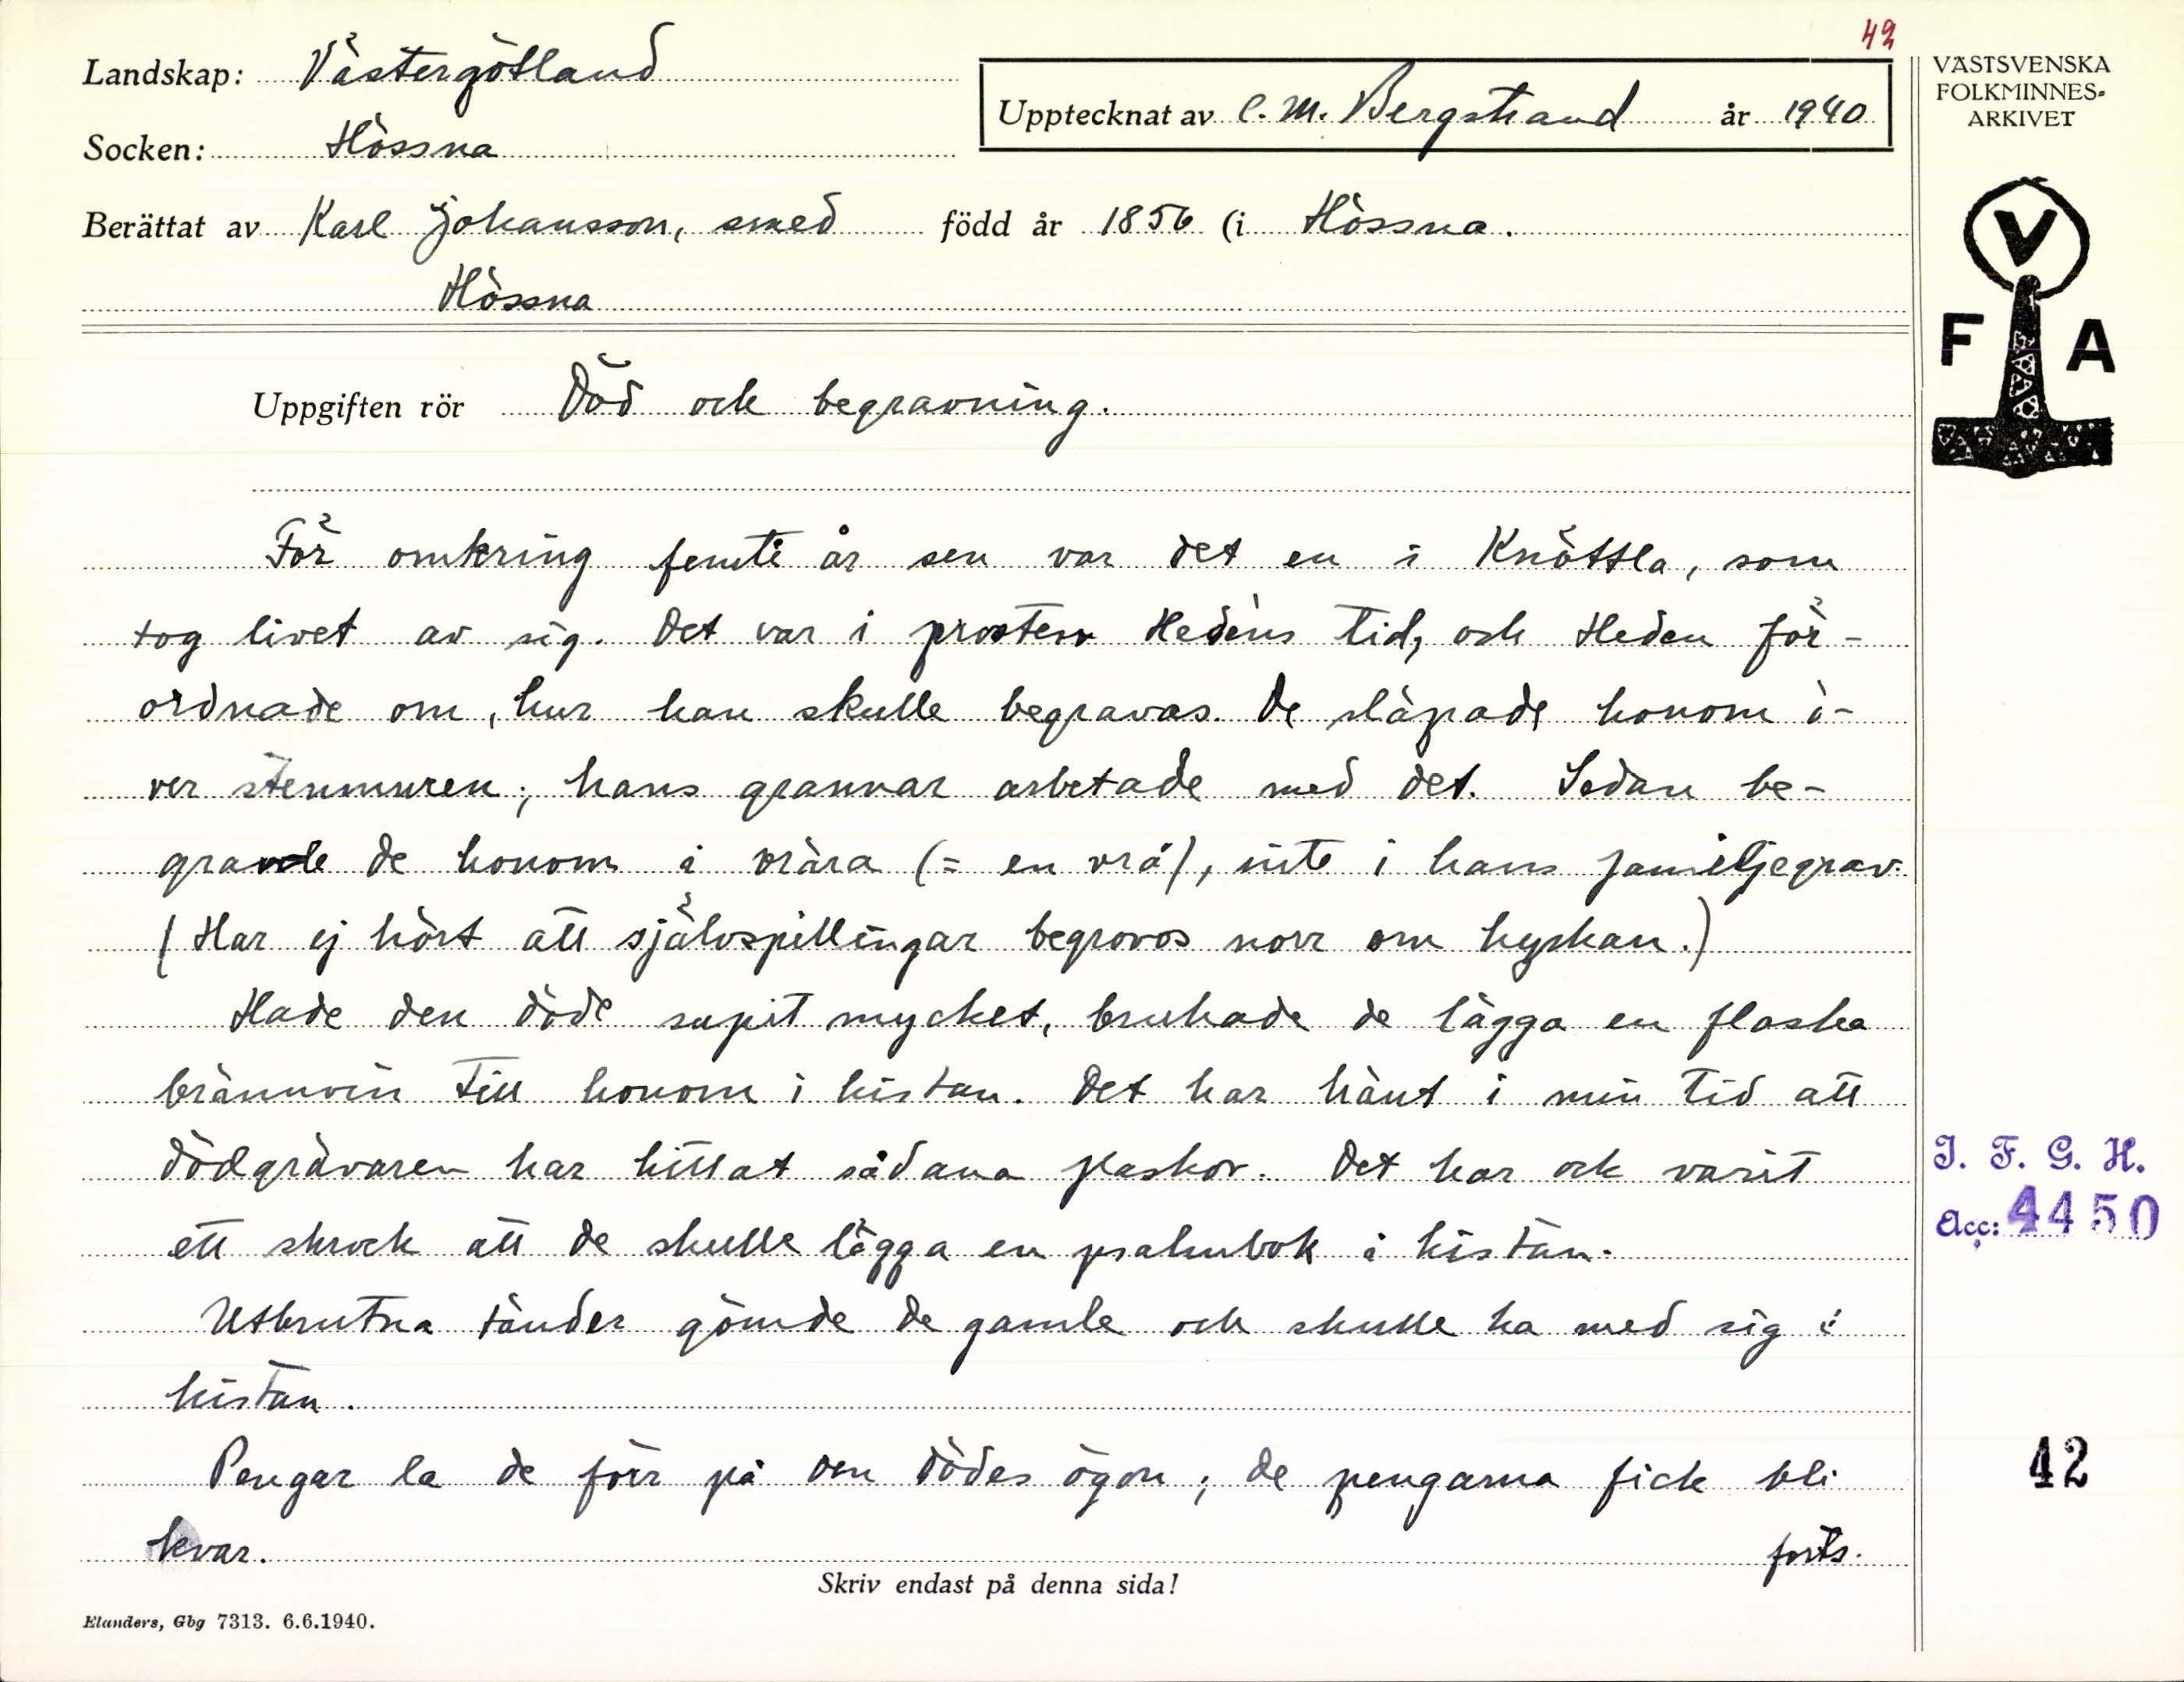 42
Landskap: Västergötland
Upptecknat av C. M. Bergstrand år 1940
VÄSTSVENSKA
FOLKMINNES-
ARKIVET
Socken: Hössna
Berättat av Karl Johansson, smed född år 1856 (i Hössna.
Hössna
V
F A
Uppgiften rör Död och begravning.
För omkring femti år sen var det en i Knöttla, som
tog livet av sig. Det var i prosten Hedéns tid, och Heden för-
ordnade om, hur han skulle begravas. De släpade honom ö-
ver stenmuren; hans grannar arbetade med det. Sedan be-
gravde de honom i vråra (= en vrå), inte i hans familjegrav.
(Har ej hört att självspillingar begrovos norr om kyrkan.)
Hade den döde supit mycket, brukade de lägga en flaska
brännvin till honom i kistan. Det har hänt i min tid att
dödgrävaren har hittat sådana flaskor. Det har ock varit
ett skrock att de skulle lägga en psalmbok i kistan.
Utbrutna tänder gömde de gamle och skulle ha med sig i
kistan.
Pengar la de förr på den dödes ögon; de pengarna fick bli
kvar.
forts.
I. F. G. H.
Acc: 4450
42
Skriv endast på denna sida!
Elanders, Gbg 7313. 6.6.1940.